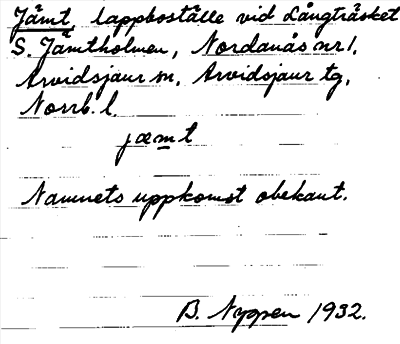 Jämt, lappboställe vid Långträsket
S. Jämtholmen, Nordanås nr 1.
Arvidsjaur sn, Arvidsjaur tg,
Norrb. l.
jæmt
Namnets uppkomst obekant.
B. Nyppen 1932.